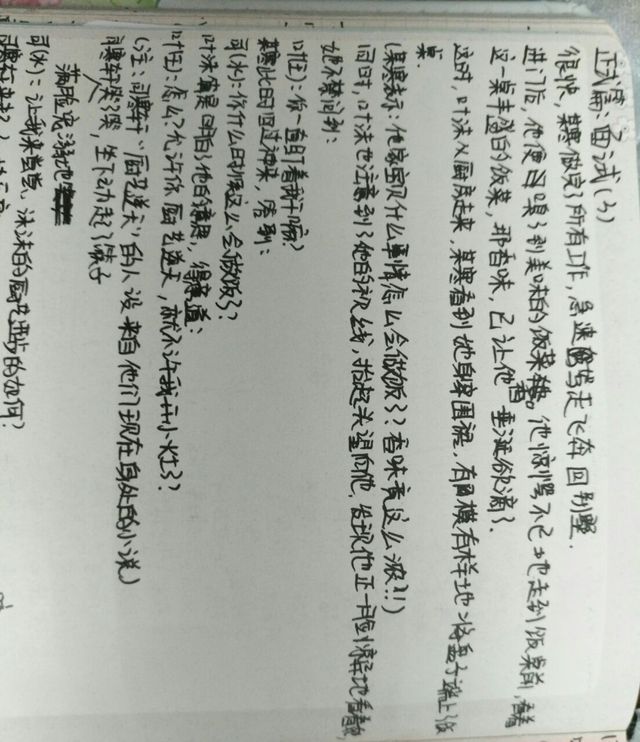 正式篇：面试(3)
很快，莫寒做完了所有工作，急速驾车飞奔回别墅.
进门后，他便嗅到美味的饭菜香。他惊愕不已地走到饭桌前，看着
这一桌丰盛的饭菜，那香味，已让他垂涎欲滴了.
这时，叶沫从厨房走来，莫寒看到她身穿围裙，有模有样地将盘子端上饭
桌.
(莫寒表示：他家宝贝什么事情怎么会做饭了？香味有这么浓?!)
同时，叶沫也注意到了他的视线，抬起头望向他，发现他正一脸惊讶地看着她，
她不禁问到：
叶(王)：你一直盯着我干嘛？
莫寒此时回过神来，答到：
司(水)：你什么时候这么会做饭了？
叶沫
叶(王)：怎么？允许你厨艺逆天，就不许我开小灶了？
(注：司寒轩"厨艺逆天"的人设来自他们现在身处的小说)
坐下动起了筷子
司(水)：让我来尝尝，沫沫的厨艺进步的如何？